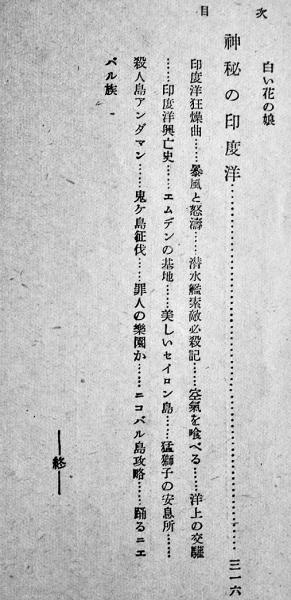 目次
白い花の娘
神秘の印度洋……三一六
印度洋狂燥曲……暴風と怒濤……潜水艦索敵必殺記……空氣を喰べる……洋上の交驩
……印度洋興亡史……エムデンの基地……美しいセイロン島……猛獅子の安息所……
殺人島アンダマン……鬼ケ島征伐……罪人の樂園か……ニコバル島攻略……踊るニエ
バル族
――終――